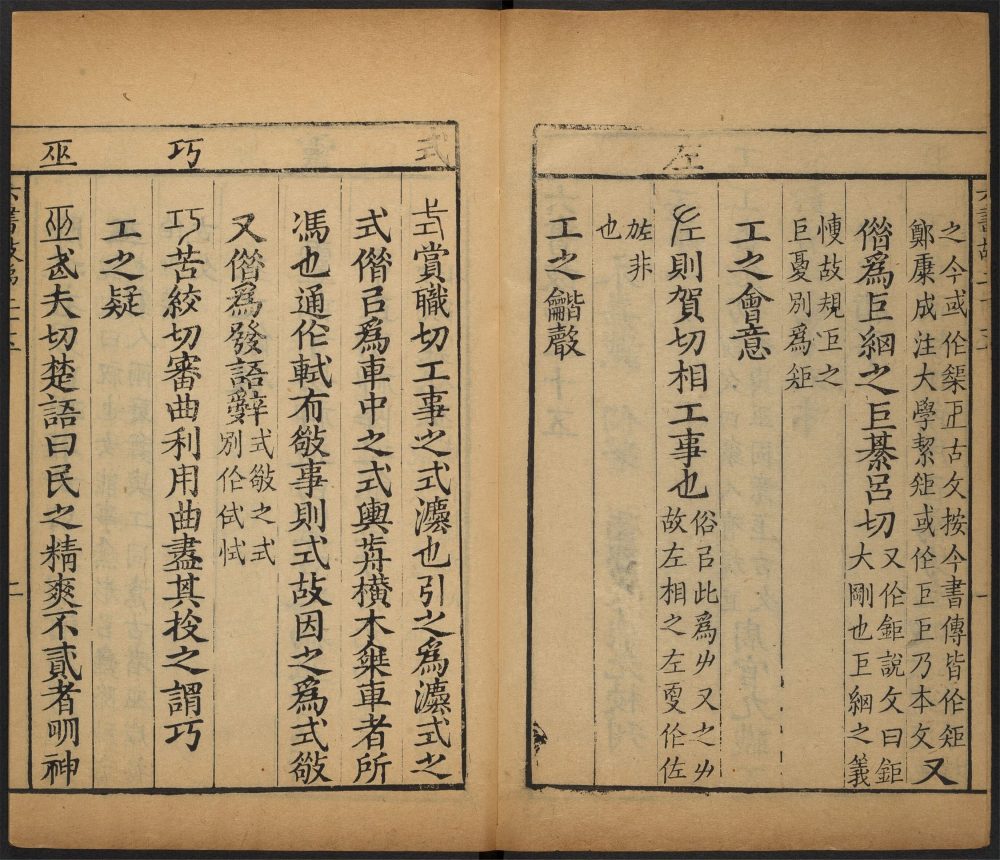 左
六書故二十五
一
之今或作榘𠮛古文按今書傳皆作矩
鄭康成注大學絜矩或作巨巨乃本文
又
僭為巨細之巨㮛呂切
又作鉅說文曰鉅
大剛也巨細之義
㥀故規巨之
巨𢝊別為矩
工之會意
左則賀切相工事也
俗㠯此為𠂇又之𠂇
故左相之左𢝊作佐
㘴非
也
工之龤聲
式
巧
巫
式賞職切工事之式灋也引之為灋式之
式僭㠯為車中之式輿前橫木椉車者所
馮也通作軾有敬事則式故因之為式敬
又僭為發語辤
式敬之式
別作侙恜
巧苦絞切審曲利用曲盡其技之謂巧
工之疑
巫武夫切楚語曰民之精爽不貳者明神
六書故弟二十五
二